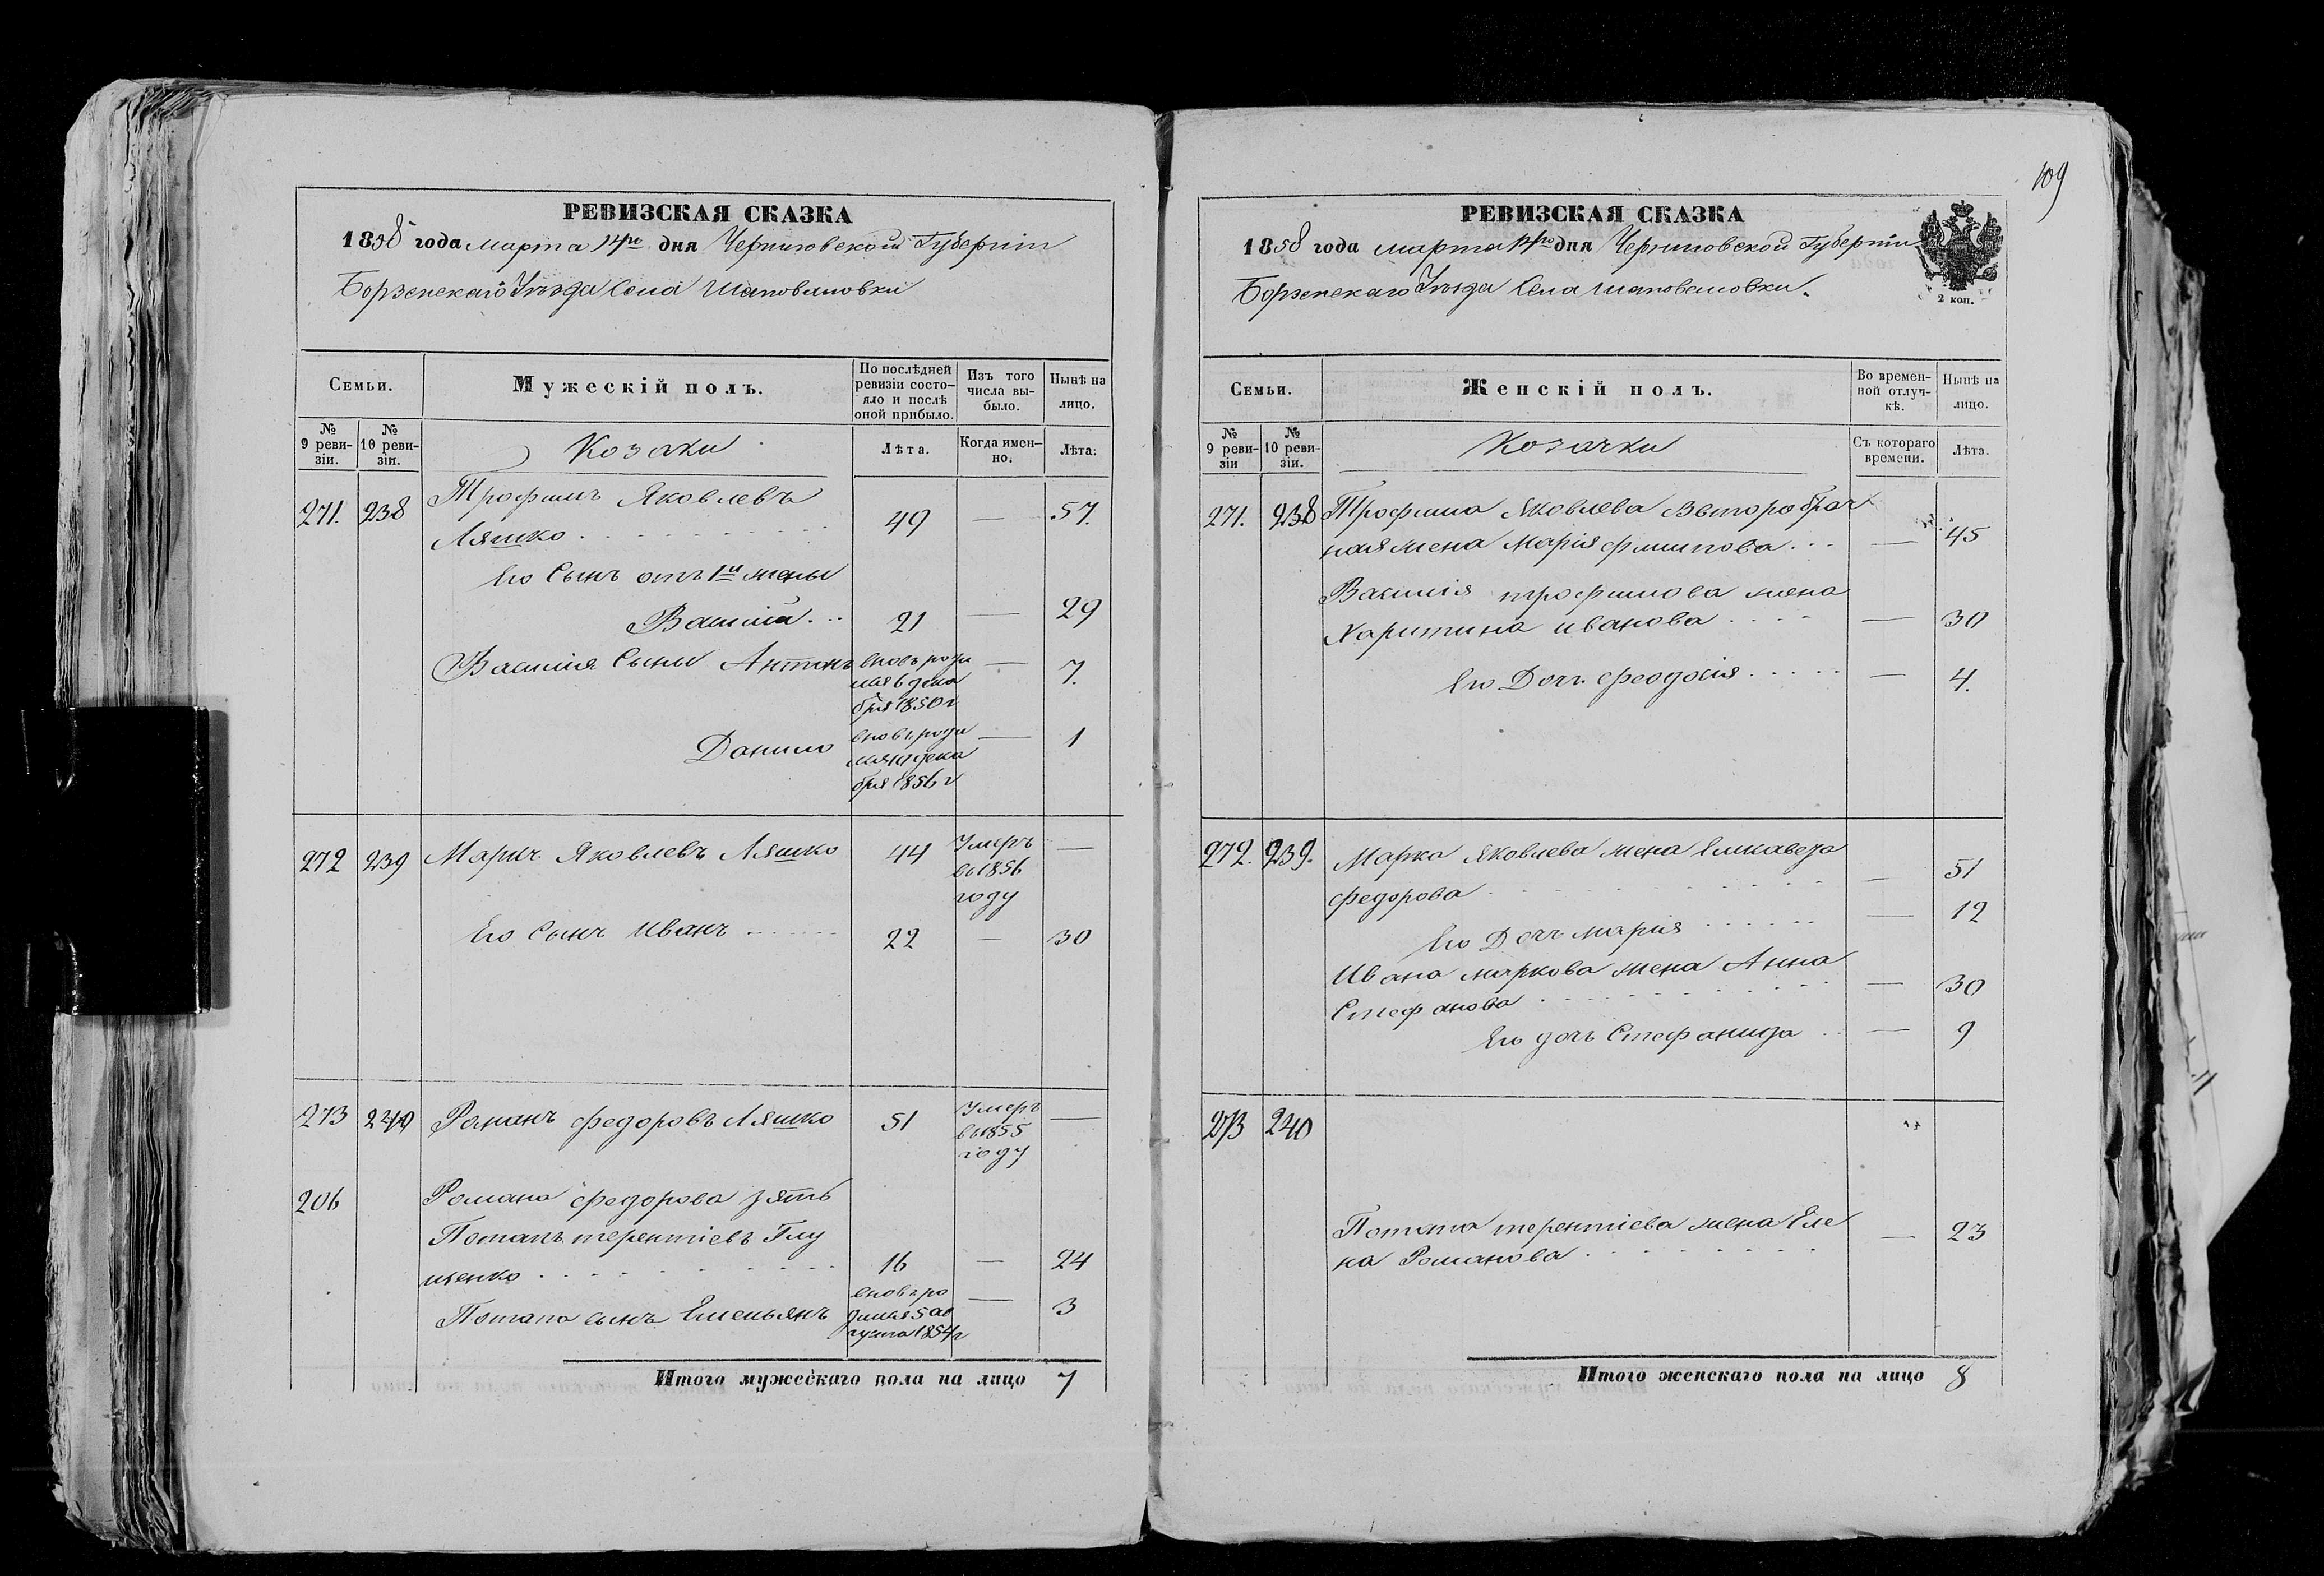 РЕВИЗСКАЯ СКАЗКА
1858 года марта 14го дня Черниговской Губерніи
Борзенскаго Уѣзда Села Шаповаловки
Семьи.
Мужескій полъ.
По послѣдней ревизіи состояло и послѣ оной прибыло.
Изъ того числа выбыло.
Нынѣ на лицо.
№ 9 ревизіи.
№ 10 ревизіи.
Козаки
Лѣта.
Когда именно.
Лѣта.
271. 238 Трофимъ Яковлевъ
Ляшко 49 — 57.
Его Сынъ отъ 1й жены
Василій 21 — 29
Василія Сыны Антонъ вновь роди — 7.
лся 6 дека
бря 1850 г
Данило вновь роди — 1
лся дека
бря 1856 г
272 239 Маркъ Яковлевъ Ляшко 44 Умеръ —
въ 1856
году
Его Сынъ Иванъ 22 — 30
273 240 Романъ Федоровъ Ляшко 51 Умеръ —
въ 1855
году
206 Романа Федорова зять
Потапъ терентіевъ Глу
щенко 16 — 24
Потапа сынъ Емельянъ вновь ро — 3
дился 5 ав
густа 1854 г
Итого мужескаго пола на лицо 7
109
РЕВИЗСКАЯ СКАЗКА
1858 года марта 14го дня Черниговской Губерніи
Борзенскаго Уѣзда Села Шаповаловки.
2 коп.
Семьи.
Женскій полъ.
Во временной отлучкѣ.
Нынѣ на лицо.
№ 9 ревизіи
№ 10 ревизіи.
Козачки
Съ котораго времени.
Лѣта.
271. 238 Трофима Яковлева второбрач
ная жена Марія Филипова — 45
Василія трофимова жена
Харитина иванова — 30
Его Дочь Феодосія — 4.
272. 239. Марка Яковлева жена Елисавета
Федорова — 51
Его Дочь Марія — 12
Ивана Маркова жена Анна
Стефанова — 30
Его дочь Стефанида — 9
273 240
Потапа терентіева жена Еле
на Романова — 23
Итого женскаго пола на лицо 8